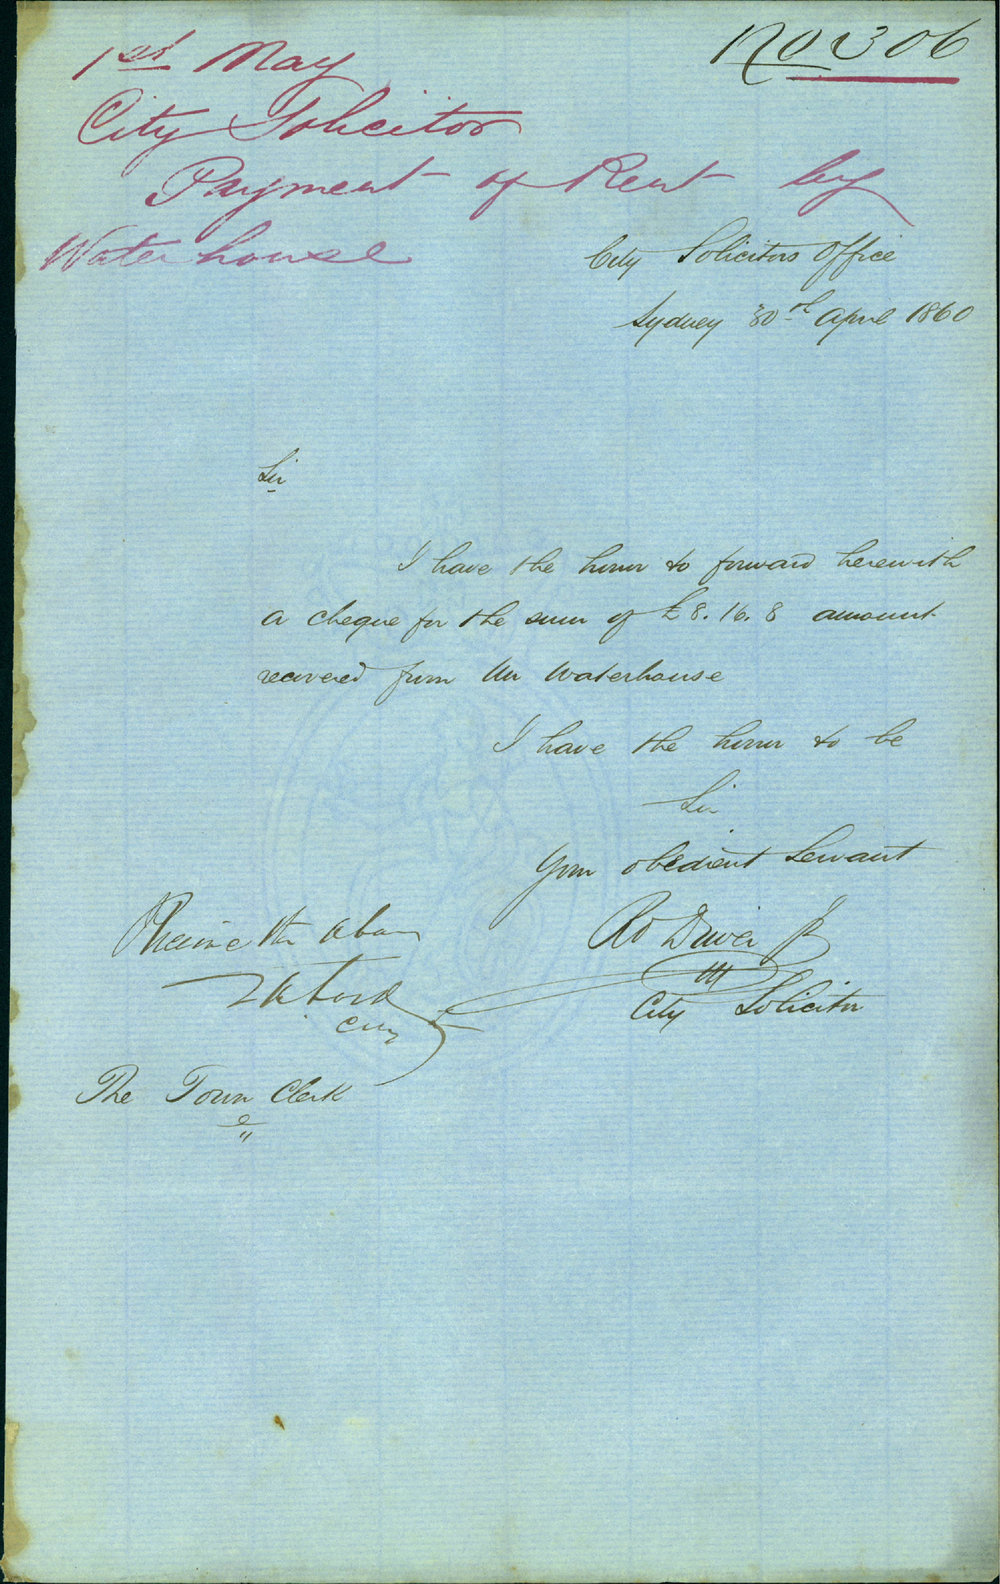 No 306
1st May
City Solicitor
Payment of Rent by
Waterhouse
City Solicitors Office
Sydney 30th April 1860
Sir
I have the honor to forward herewith
a cheque for the sum of £8.16.8 amount
recovered from Mr Waterhouse
I have the honor to be
Sir
Your obedient Servant
Rd Driver Jr
City Solicitor
Received the above
The Town Clerk